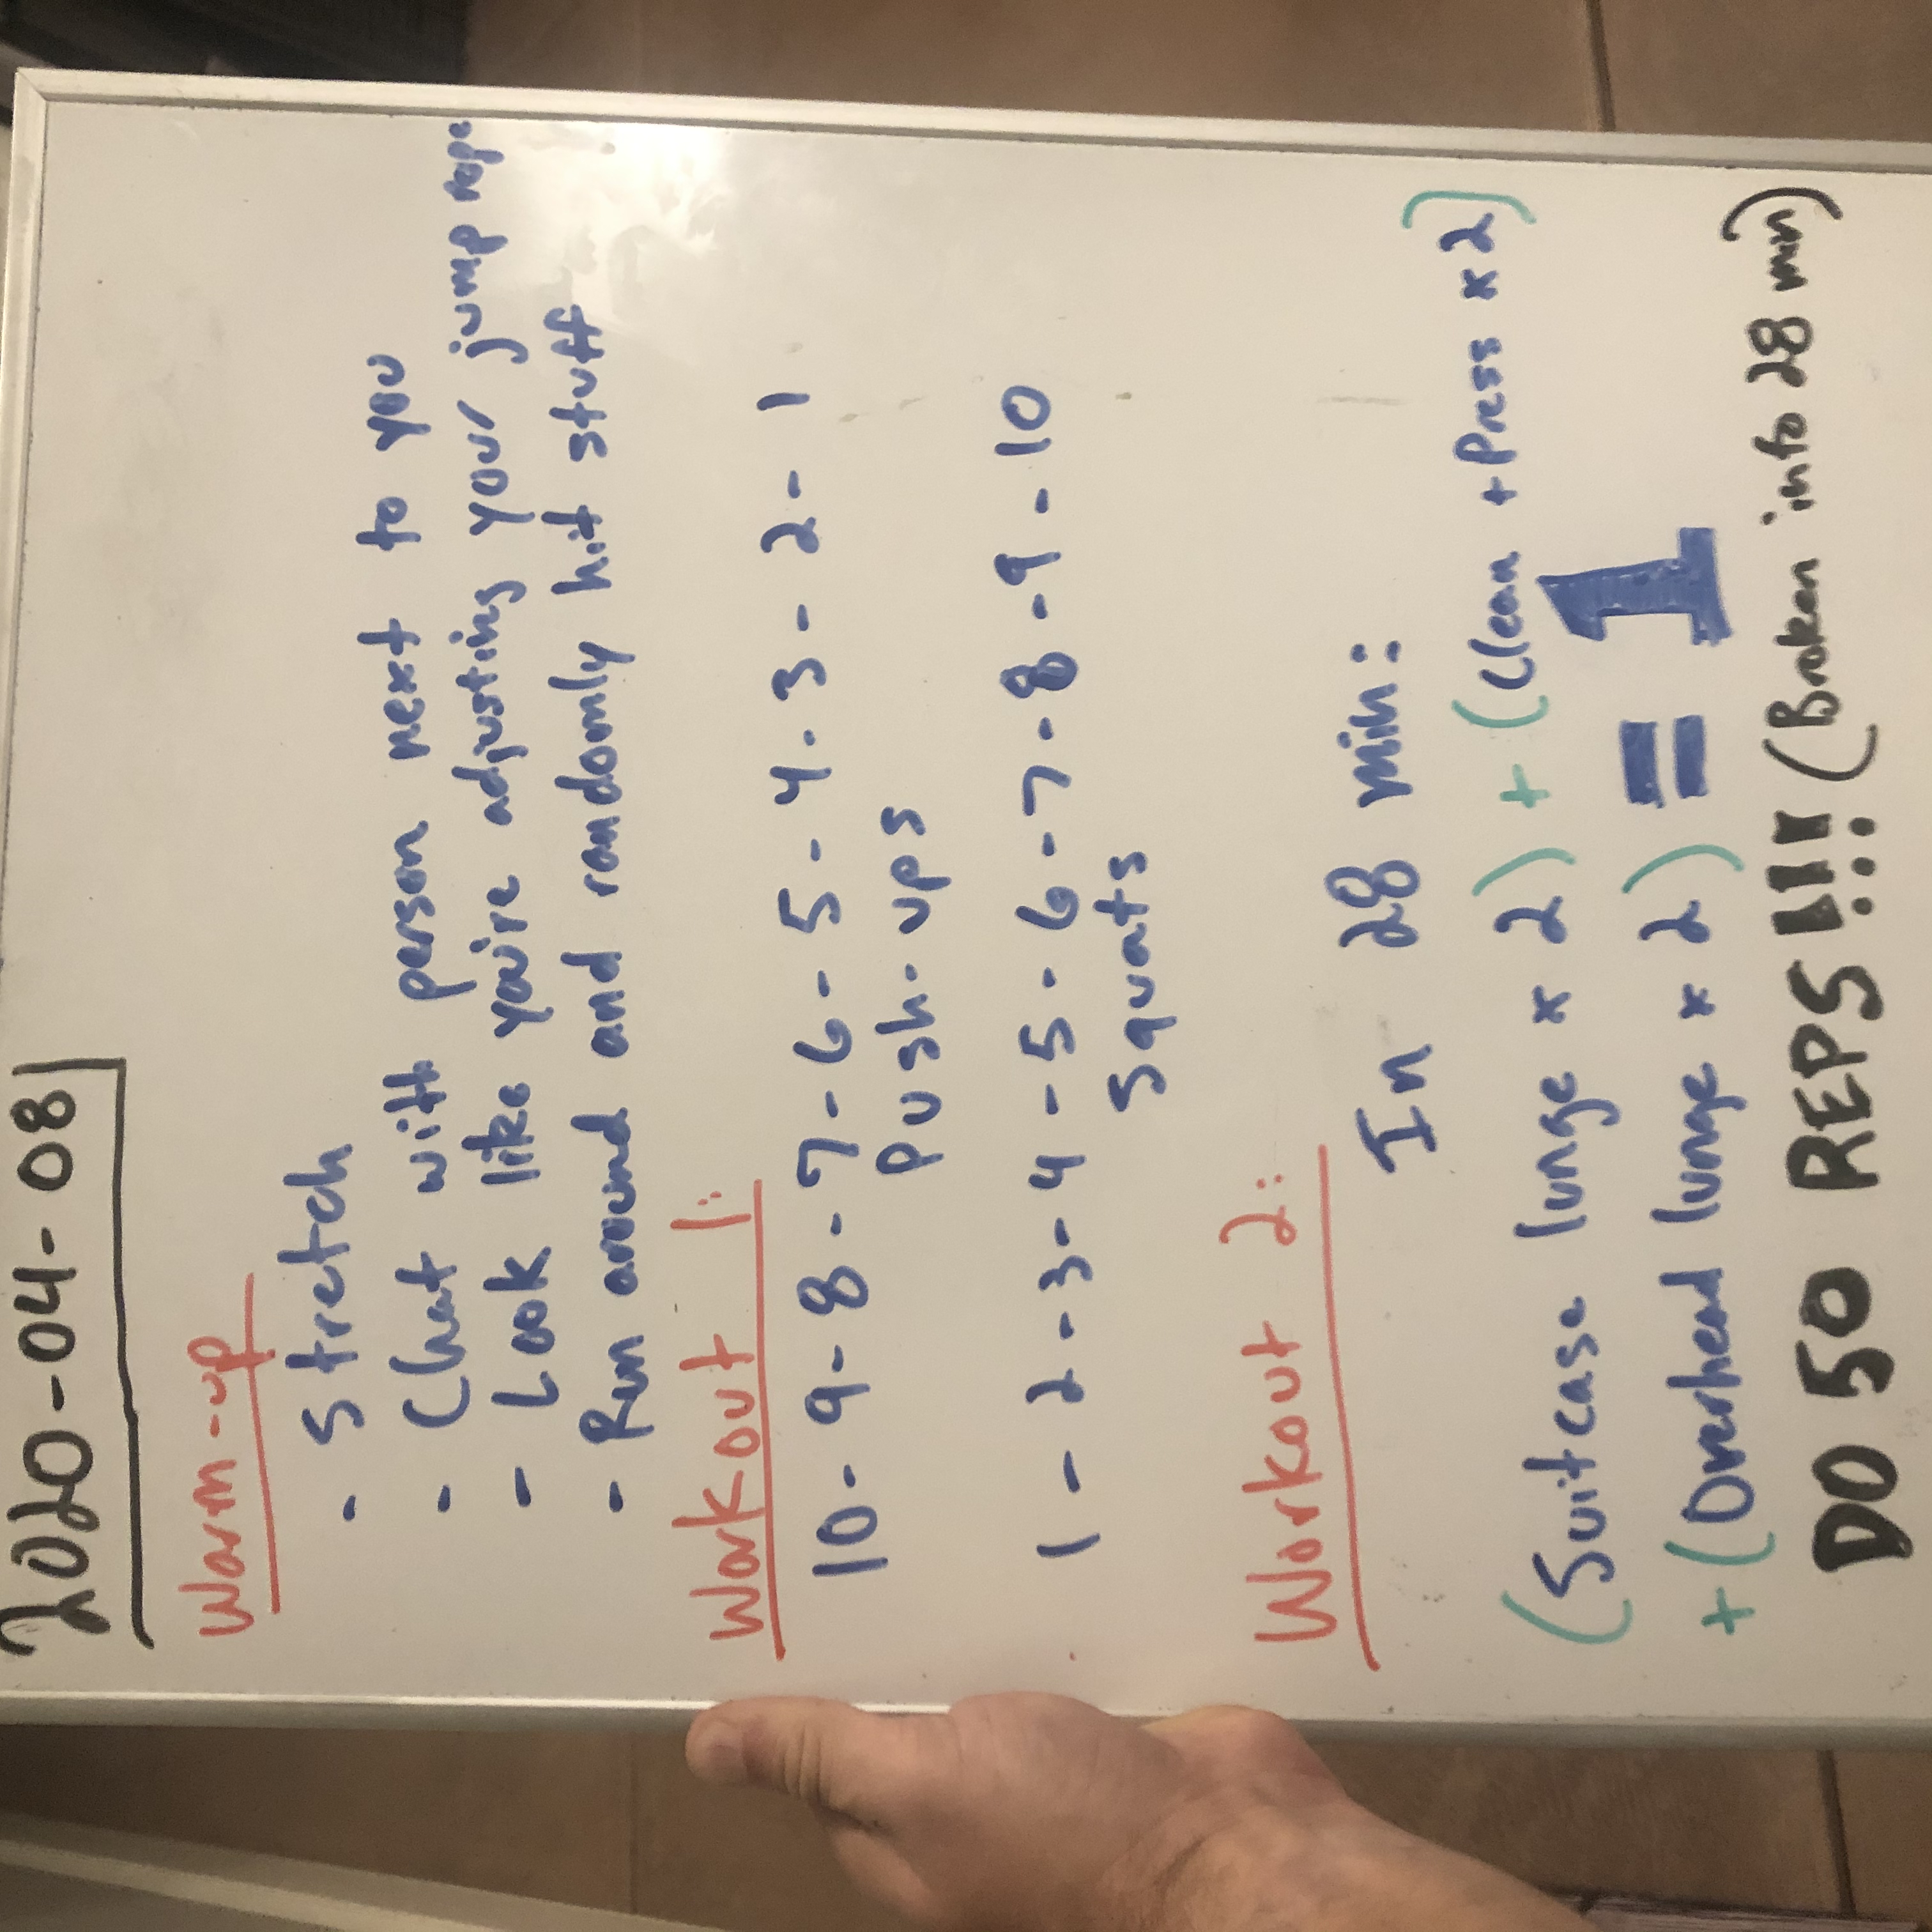 2020-04-08
Warm-up
- Stretch
- Chat with person next to you
- Look like you're adjusting your jump rope
- Run around and randomly hit stuff
Workout 1:
10-9-8-7-6-5-4-3-2-1
Push-ups
1-2-3-4-5-6-7-8-9-10
Squats
Workout 2:
In 28 min:
(Suitcase lunge x 2) + (Clean + Press x 2)
+ (Overhead lunge x 2) = 1
DO 50 REPS!!! (Broken into 28 min)